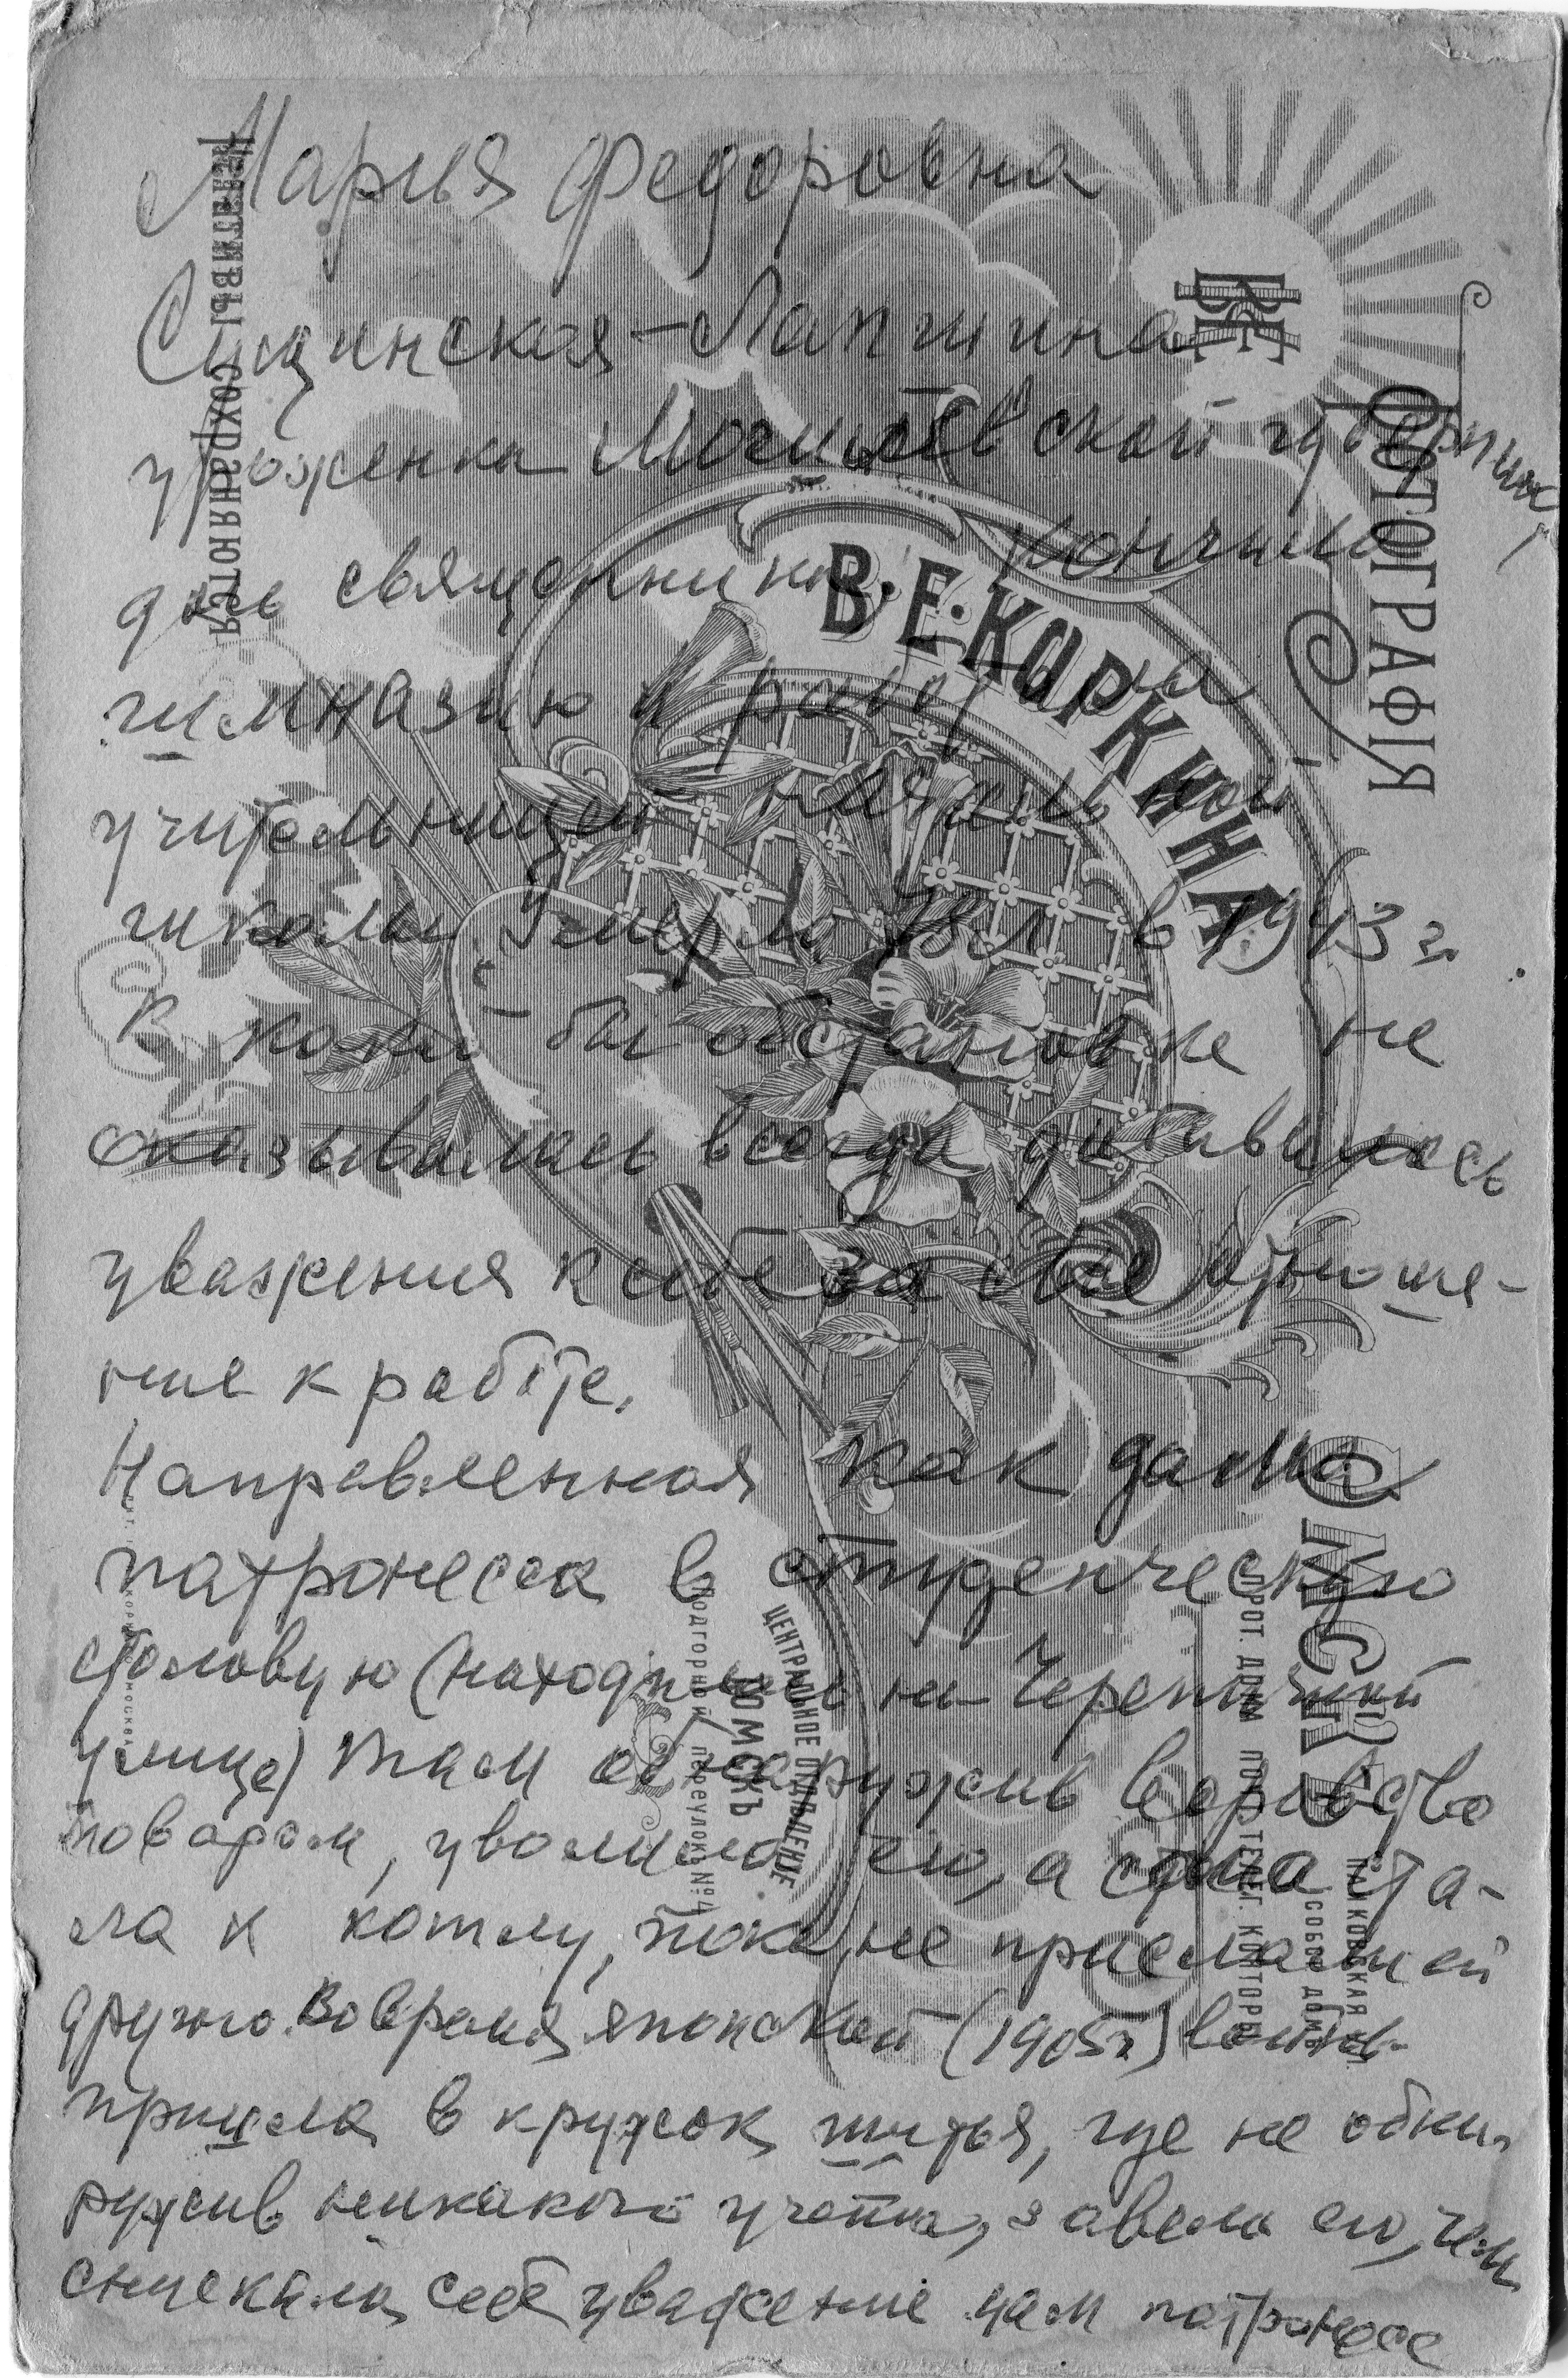 Мария Федоровна
Сущинская-Лапшина
уроженка Могилевской губернии,
дочь священника. Кончила
гимназию и работала
учительницей начальной
школы Умерла 78 л в 1943 г.
В какой бы обстановке не
оказывалась всегда добивалась
уважения к себе за свое отноше-
ние к работе.
Направленная как дама
патронесса в студенческую
столовую (находилась на
улице) там обнаружив воровство
поваром, уволила его, а сама ста-
ла к котлу, пока не прислали ей
другого. Во время японской (1905г) войны
пришла в кружок шитья, где не обна-
ружив никакого учета, завела его, чем
снискала себе уважение дам патронесс
НЕГАТИВЫ СОХРАНЯЮТСЯ
ФОТОГРАФІЯ
В. Е. КОРКИНА.
ОМСКЪ
ПРОТ. ДОМЫ ПОЧ. ТЕЛЕГ. КОНТОРЫ
СОБСТ. ДОМЪ
ЦЕНТРАЛЬНОЕ ОТДѢЛЕНІЕ
ТОМСКЪ
Подгорный переулокъ №4